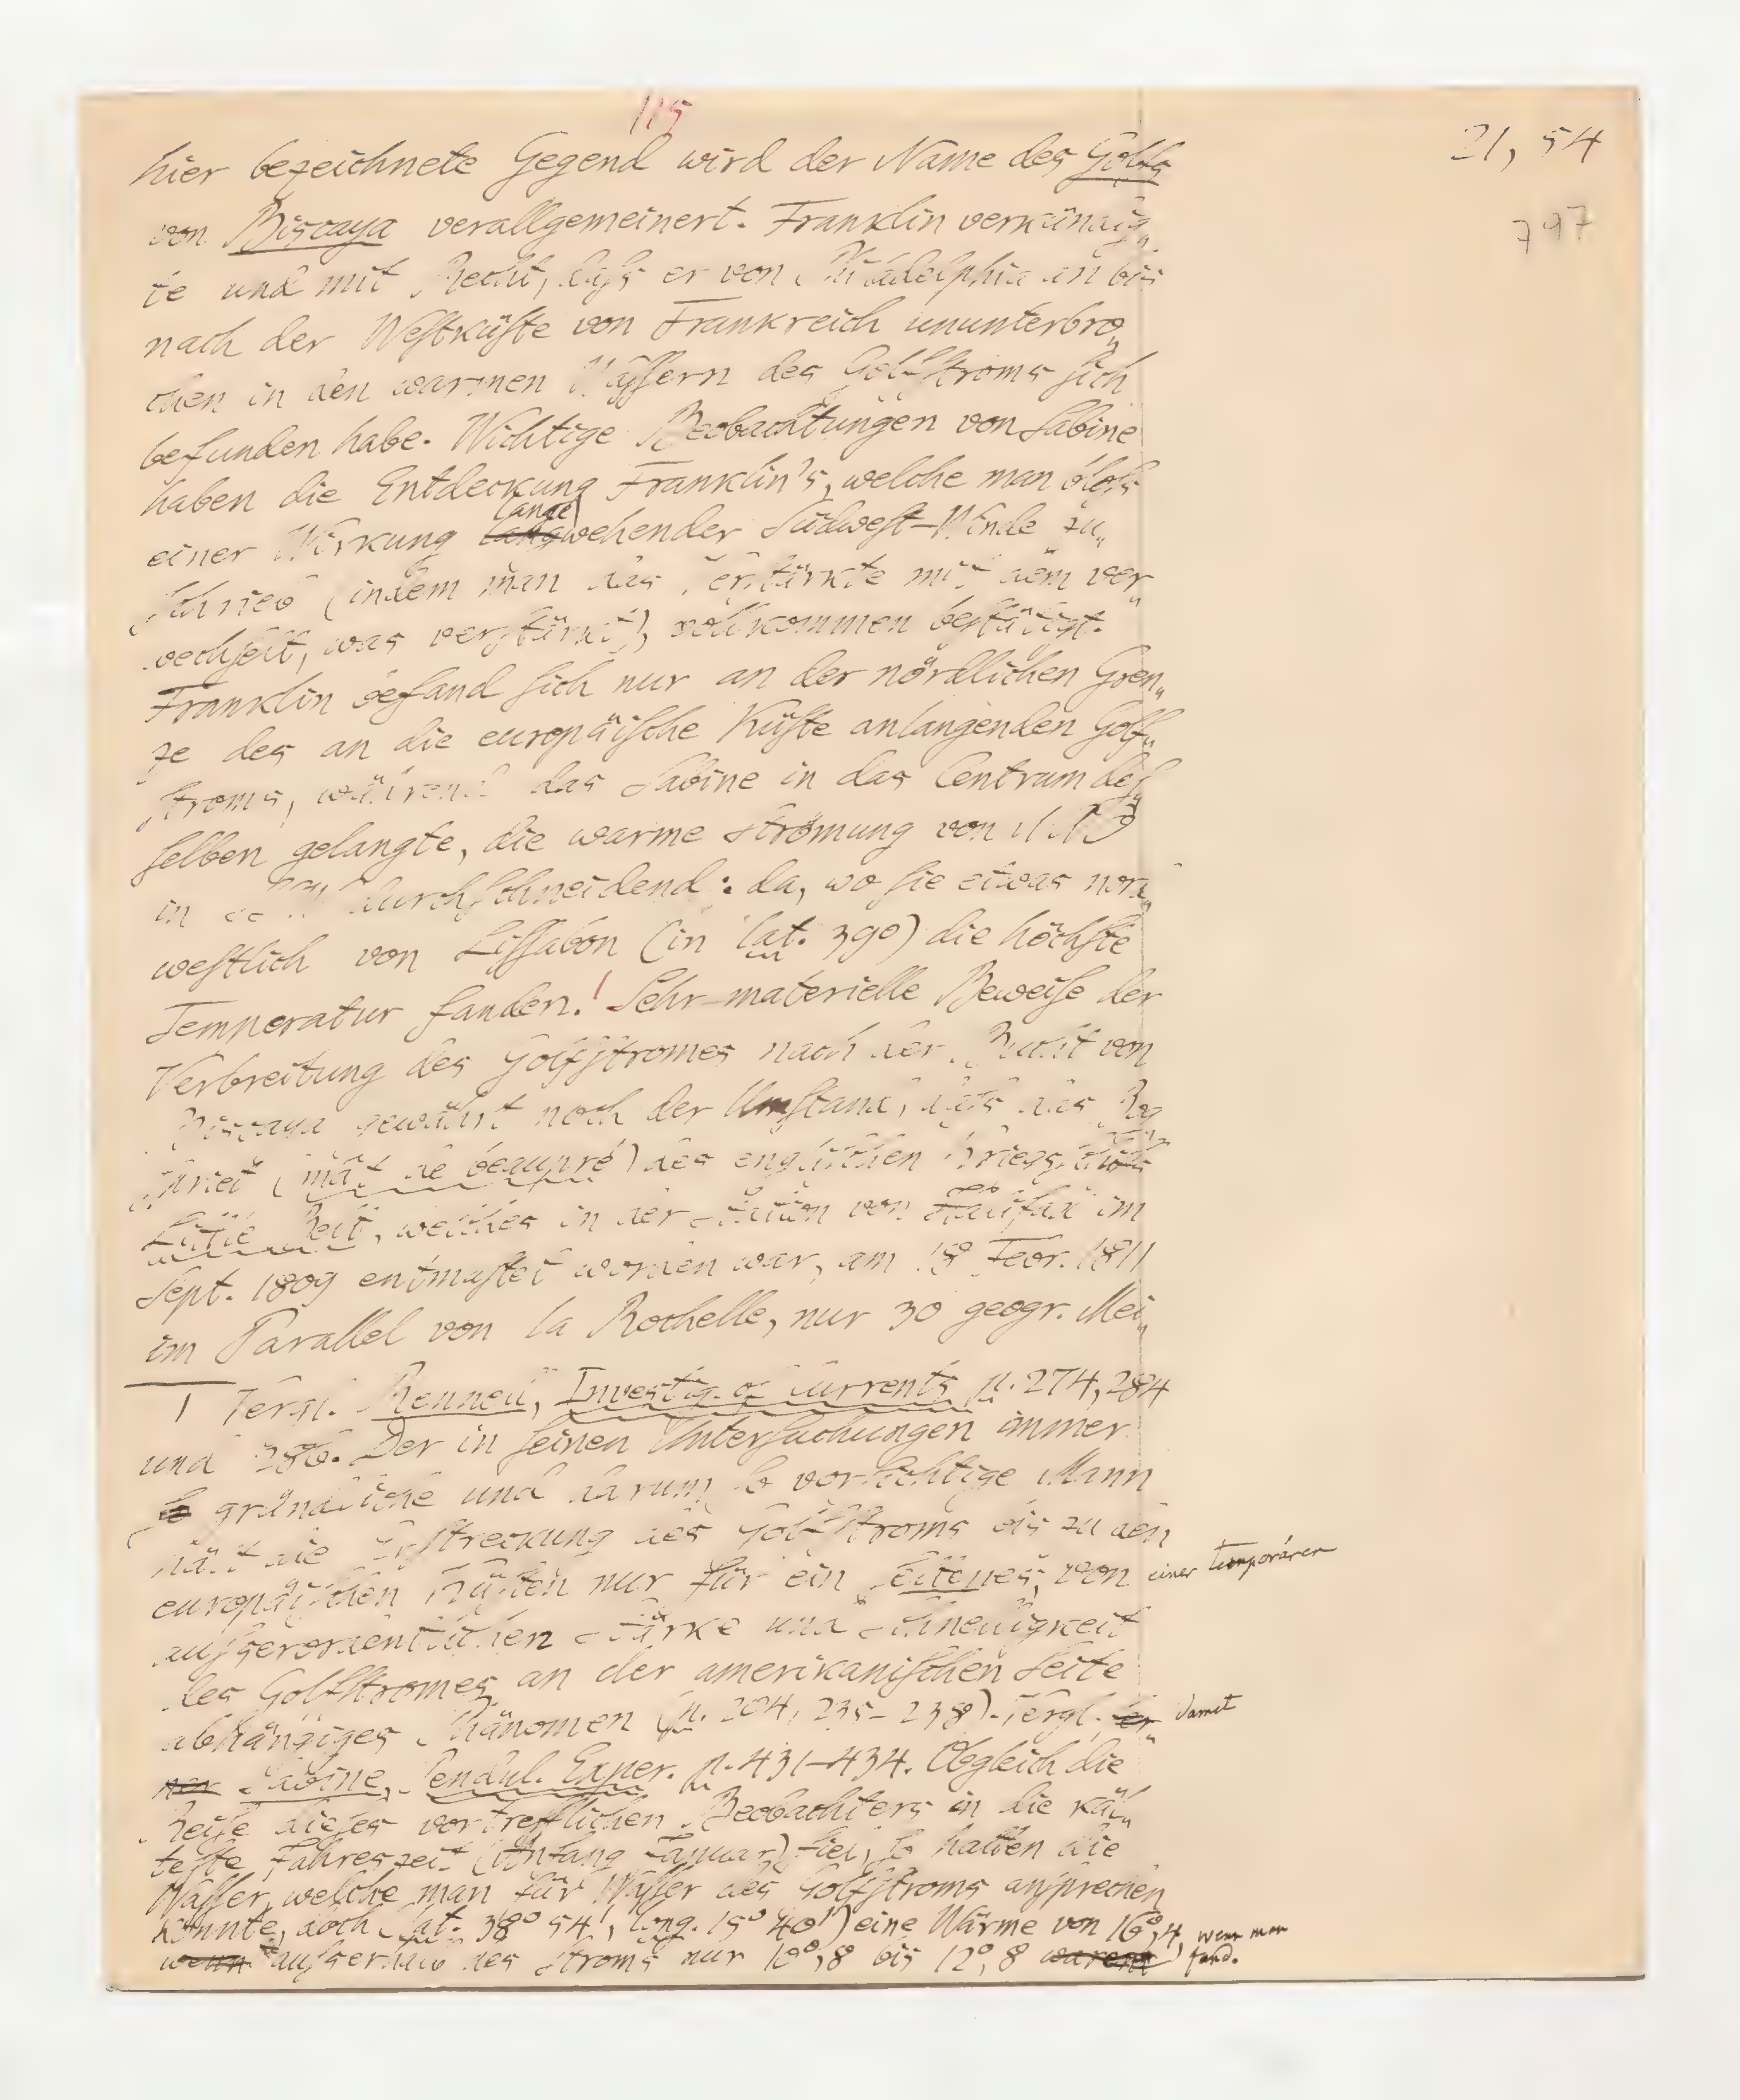 115
21, 54
797
hier bezeichnete Gegend wird der Name des Golfs
von Biscaya verallgemeinert. Franklin verkündig„
te und mit Recht, daſs er von Philadelphia an bis
nach der Weſtküſte von Frankreich ununterbro„
chen in den warmen Waſſern des Golfſtroms ſich
befunden habe. Wichtige Beobachtungen von Sabine
haben die Entdeckung Franklin's, welche man bloſs
einer Wirkung lange wehender Südweſt-Winde zu„
ſchrieb (indem man das Verſtärkte mit dem ver„
wechſelt, was verſtärkt), vollkommen beſtätigt.
Franklin befand ſich nur an der nördlichen Gren„
ze des an die europäiſche Küſte anlangenden Golf„
ſtroms, während das Sabine in das Centrum deſ„
ſelben gelangte, die warme Strömung von
in durchſchneidend: da, wo ſie etwas nord„
weſtlich von Liſſabon (in lat. 39°) die höchſte
Temperatur fanden.¹ Sehr materielle Beweiſe der
Verbreitung des Golfſtromes nach der Bucht von
Biscaya gewährt noch der Umſtand, daſs das Bog„
ſpriet (mât de beaupré) des engliſchen Kriegsſchiffs
Little Belt, welches in der Station von Halifax im
Sept. 1809 entmaſtet worden war, am 18 Febr. 1811
im Parallel von la Rochelle, nur 30 geogr. Mei„
1 Vergl. Rennell, Investig. of Currents p. 274, 284
und 286. Der in ſeinen Unterſuchungen immer
gründliche und darum ſo vorſichtige Mann
hält die Erſtreckung des Golfſtroms bis zu den
europäiſchen Küſten nur für ein ſeltenes, von einer temporären
auſserordentlichen Stärke und Schnelligkeit
des Golfſtromes an der amerikaniſchen Seite
abhängiges Phänomen (p. 204, 235–238). Vergl. damit
Sabine, Pendul. Exper. p. 431–434. Obgleich die
Reiſe dieſes vortrefflichen Beobachters in die käl„
teſte Jahreszeit (Anfang Januar) fiel, ſo hatten die
Waſſer, welche man für Waſſer des Golfſtroms anſprechen
konnte, doch (lat. 38° 54', long. 15° 40') eine Wärme von 16°,4, wenn man
auſserhalb des Stroms nur 10°,8 bis 12°,8 fand.